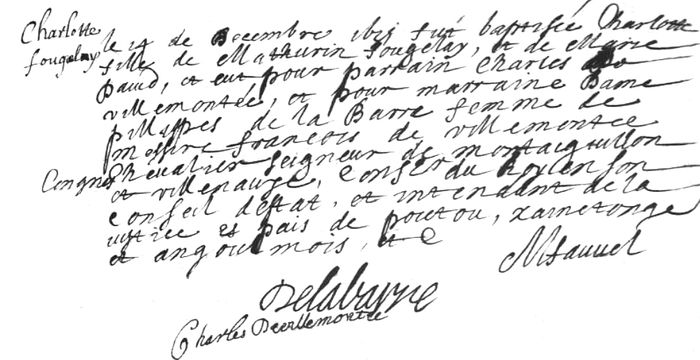 Charlotte
fougelay
le 14 de Decembre fut baptisée Charlotte
fille de Mathurin fougelay, et de Marie
paud, et eut pour parrain Charles De
villemontée, et pour marraine Dame
phlippes de la Barre femme de
messire francois de villemontee
Chevalier seigneur de montaiguillon
et villenauxe, Conser du Roy en son
Conseil destat, et intendant de la
justice es païs de poutou, xainctonge
et angoulmois, etc
Delabarre
Charles Devillemontée